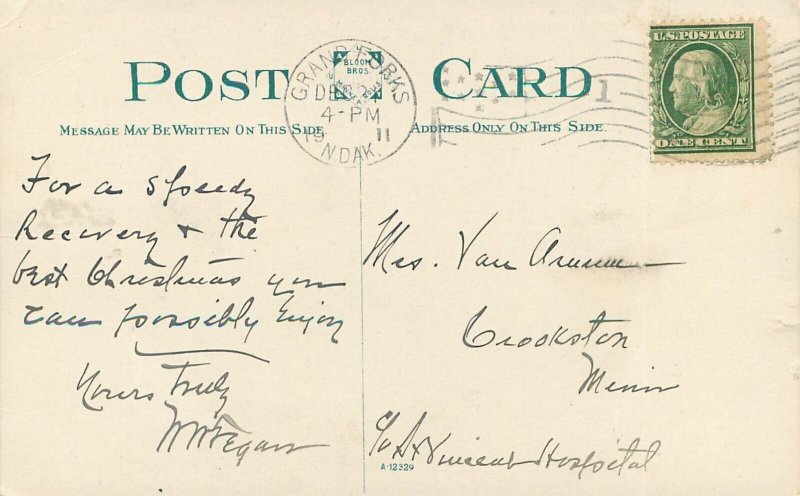 POST CARD
BLOOM
BROS.
GRAND FORKS
4-PM
19 11
N DAK.
1
U.S. POSTAGE
ONE CENT
MESSAGE MAY BE WRITTEN ON THIS SIDE
ADDRESS ONLY ON THIS SIDE
For a speedy
Recovery & the
best Christmas you
can possibly Enjoy
Yours Truly
Mrs. Van
Crookston
Minn
c/o St Vincent Hospital
A-12329